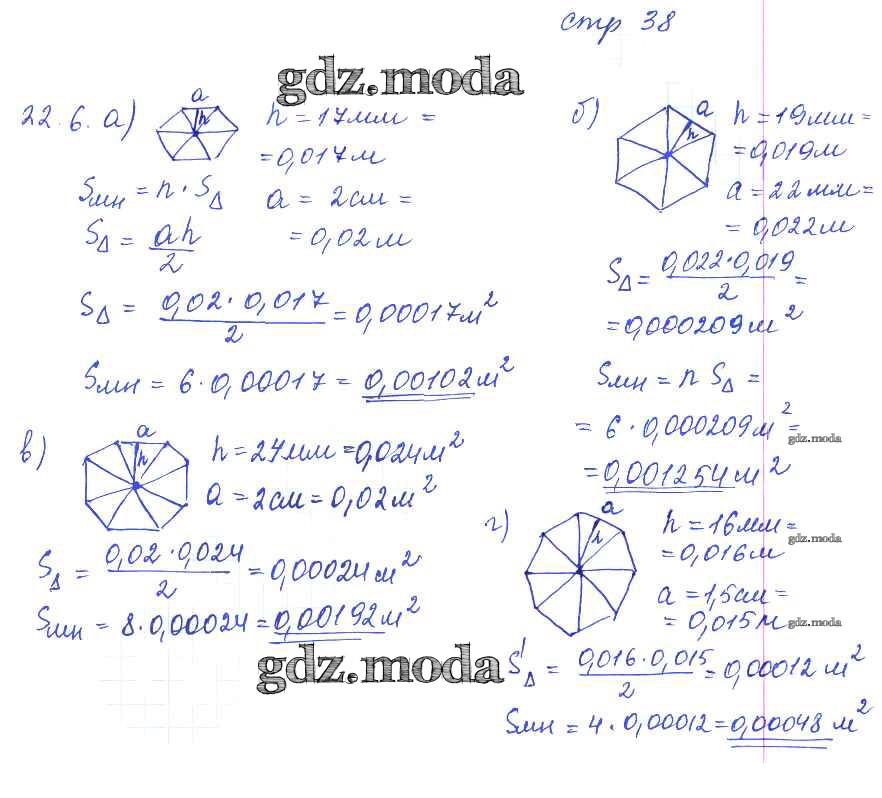 стр 38
gdz.moda
22.6. а)
a
h
h = 17мм =
= 0,017м
Sмн = n · S△
a = 2см =
= 0,02м
S△ = ah/2
S△ = 0,02 · 0,017/2 = 0,00017м²
Sмн = 6 · 0,00017 = 0,00102м²
б)
a
h
h = 19мм =
= 0,019м
a = 22мм =
= 0,022м
S△ = 0,022 · 0,019/2 =
= 0,000209м²
Sмн = n S△ =
= 6 · 0,000209м² =
gdz.moda
= 0,001254м²
в)
a
h
h = 24мм = 0,024м²
a = 2см = 0,02м²
S△ = 0,02 · 0,024/2 = 0,00024м²
Sмн = 8 · 0,00024 = 0,00192м²
gdz.moda
г)
a
h
h = 16мм =
= 0,016м
gdz.moda
a = 1,5см =
= 0,015м
gdz.moda
S△ = 0,016 · 0,015/2 = 0,00012 м²
Sмн = 4 · 0,00012 = 0,00048 м²